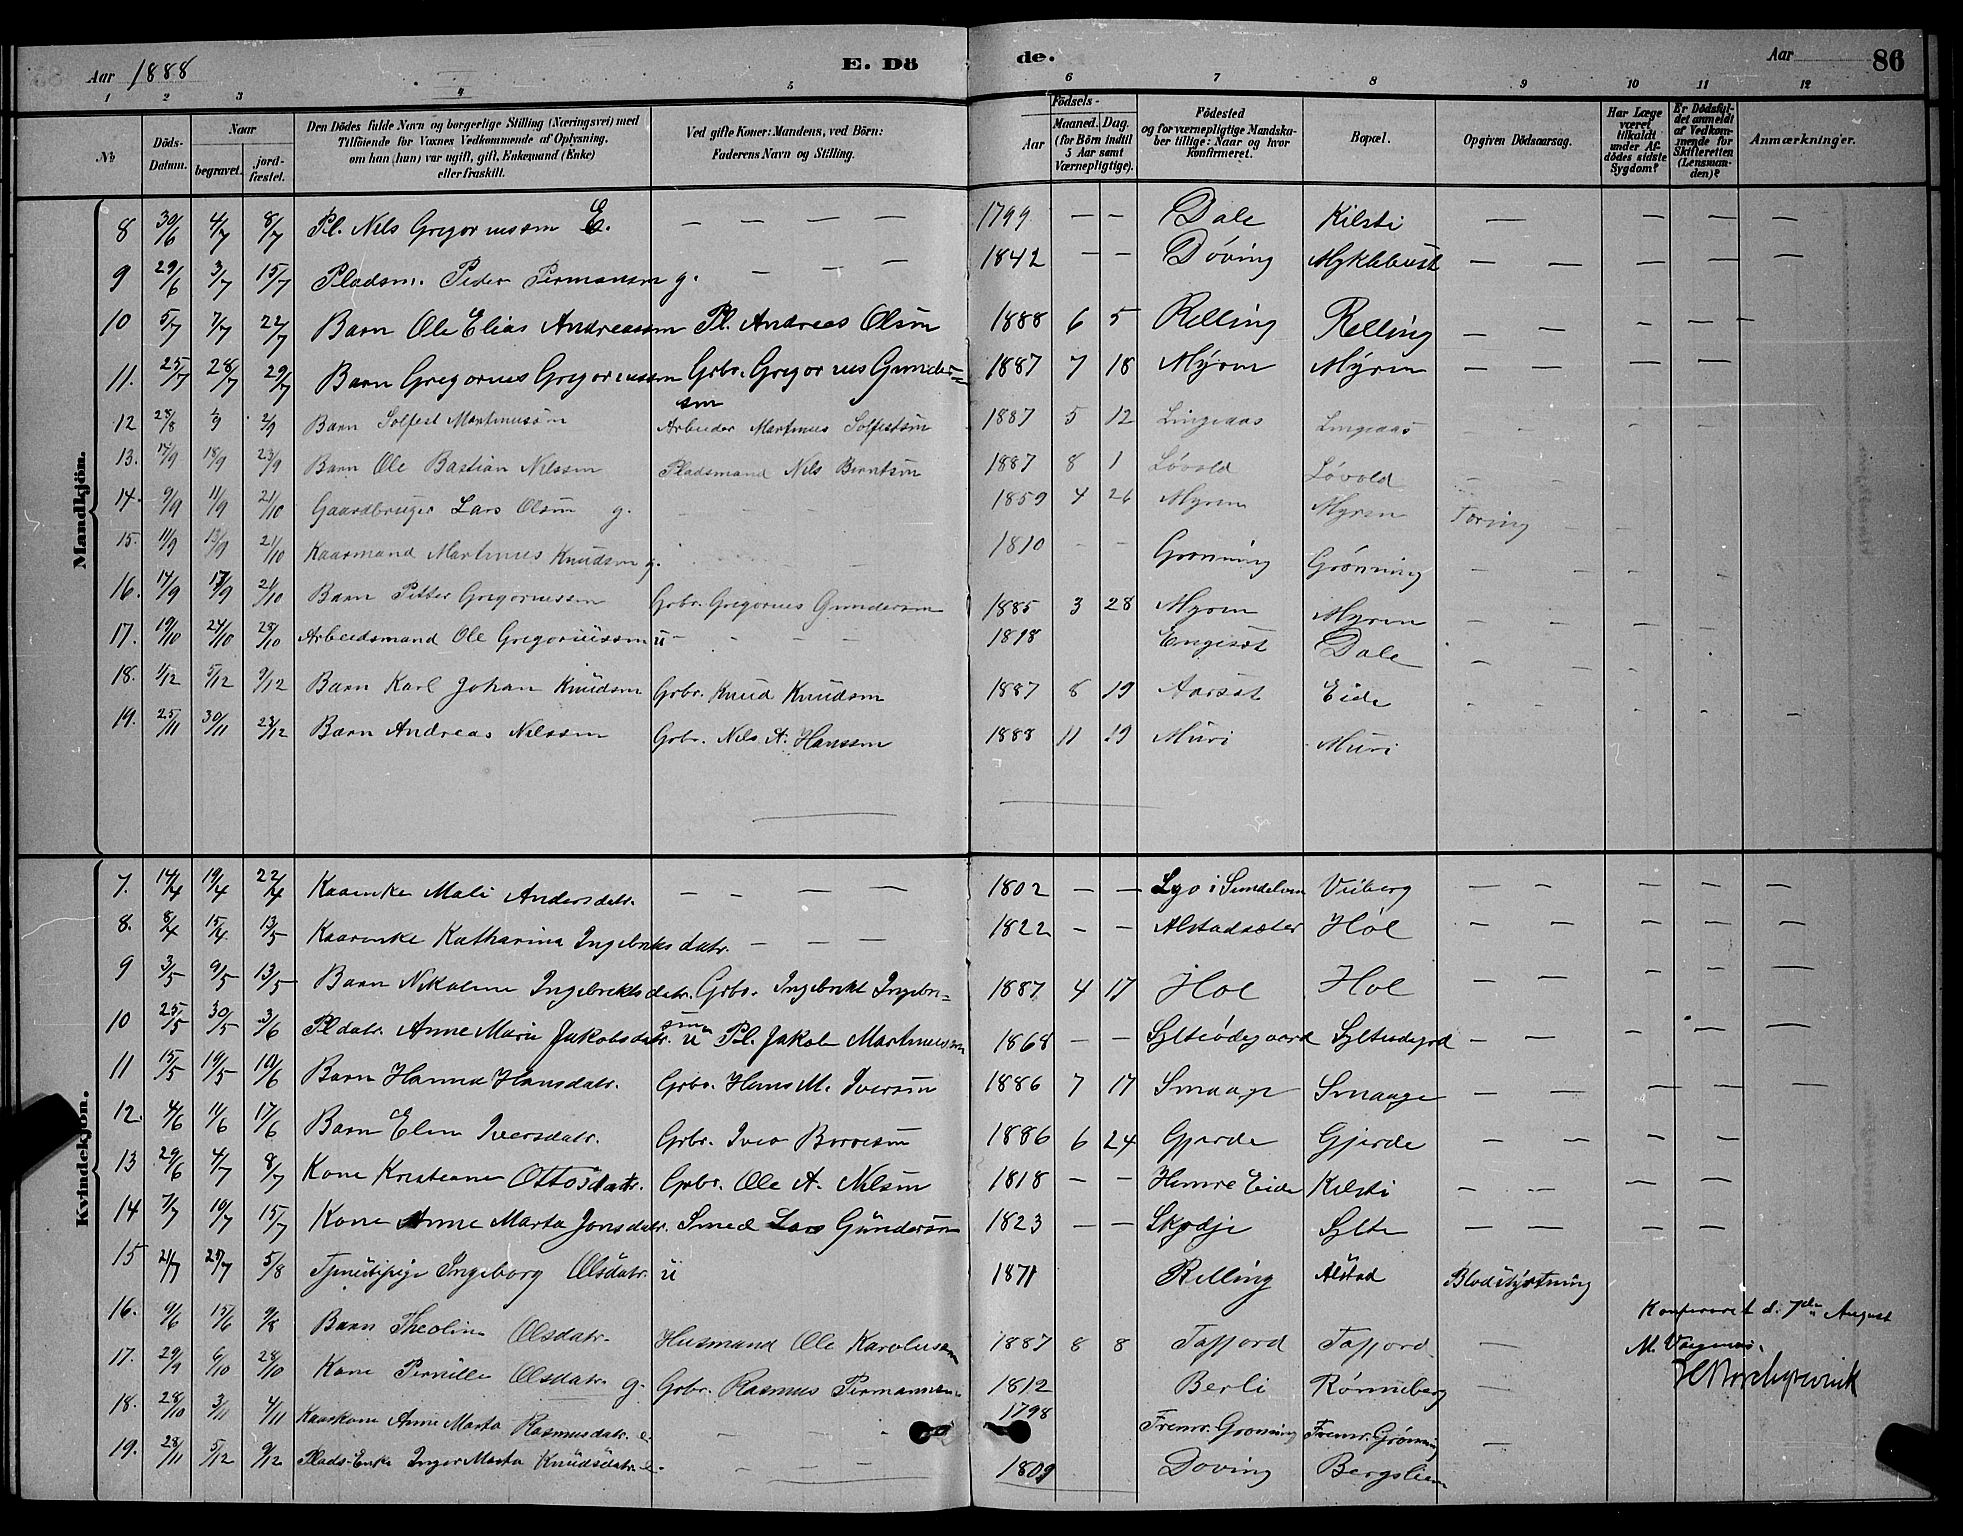 Aar 1888 E. Dö de. Aar 86
1 2 3 4 5 6 7 8 9 10 11 12
No
Döds-Datum.
Naar
begravet.
jord-fæstet.
Den Dödes fulde Navn og borgerlige Stilling (Næringsvei) med
Tilföiende for Voxnes Vedkommende af Oplysning,
om han (hun) var ugift, gift, Enkemand (Enke)
eller fraskilt.
Ved gifte Koner: Mandens, ved Börn:
Faderens Navn og Stilling.
Födsels-
Aar
Maaned. Dag.
(for Börn indtil
5 Aar samt
Værnepligtige).
Födested
og for værnepligtige Mandska-
ber tillige: Naar og hvor
konfirmeret.
Bopæl.
Opgiven Dödsaarsag.
Har Læge
været
tilkaldt
under Af-
dödes sidste
Sygdom?
Er Dödsful-
det anmeldt
af Vedkom-
mende for
Skifteretten
(Lensman-
den)?
Anmærkninger.
Mandkjön.
8 30/6 4/7 8/7 Pl. Nels Gregoriussøn E. — — — — 1799 — — Dale Kilsti — — — —
9 29/6 3/7 15/7 Pladsm. Peder Permansøn g. — — — 1842 — — Døving Myklebust — — — — —
10 5/7 7/7 22/7 Barn Ole Elias Andreassøn Pl. Andreas Olsøn 1888 6 5 Relling Relling — — — — —
11. 25/7 28/7 29/7 Barn Gregorius Gregoriussøn Grbr. Gregorius Gunder=
søn 1887 7 18 Myren Myren — — — — —
12 28/8 2/9 Barn Solfest Martinusøn Arbeider Martinus Solfestsøn 1887 5 12 Lingeaas Lingeaas
13. 14/9 18/9 23/9 Barn Ole Bastian Nilssøn Pladsmand Nils Berntsøn 1887 8 1 Løvold Løvold
14. 9/9 11/9 21/10 Gaardbruger Lars Olsøn g. 1859 4 26 Myren Myren Tæring
15. 11/9 13/9 21/10 Kaarmand Martinus Knudsøn g. 1810 — — Grønning Grønning
16. 14/9 17/9 21/10 Barn Petter Gregoriussøn Grbr. Gregorius Gundersøn 1885 3 28 Myren Myren
17. 19/10 24/10 28/10 Arbeidsmand Ole Gregoriussøn u 1818 Engeset Dale
18. 1/12 5/12 9/12 Barn Karl Johan Knudsøn Grbr. Knud Knudsøn 1887 8 19 Aarset Eide
19. 25/11 30/11 23/12 Barn Andreas Nelssøn Grbr. Nils A. Hanssøn 1888 11 19 Muri Muri
Kvindekjön.
7. 14/4 19/4 22/4 Kaarenke Mali Andersdatr. — — — — 1802 — — Viiberg — — — — —
8. 8/4 15/4 13/5 Kaarenke Katharina Ingebriktsdatr. — — — 1822 — — Alstadsæter Hol — — — — —
9 3/5 9/5 13/5 Barn Nikoline Ingebriktsdatr. Grbr. Ingebrikt Ingebr=
søn 1887 4 17 Hol Hol — — — — —
10 25/5 30/5 3/6 Pl datr. Anne Marie Jakobsdatr. u Pl. Jakob Martinussøn 1868 — — Sylteødegaard Sylteødegrd — — — — —
11 15/5 19/5 10/6 Barn Hanna Hansdatr. Grbr. Hans M. Iversøn 1886 7 17 Smaage Smaage — — — — —
12. 4/6 11/6 17/6 Barn Elen Iversdatr. Grbr. Iver 1886 6 24 Gjerde Gjerde — — — — —
13 29/6 4/7 8/7 Kone Kristiane Ottosdatr. Grbr. Ole A. Nelsøn 1818 — — Eide Kilsti — — — — —
14 7/7 10/7 15/7 Kone Anne Marta Jonsdatr. Smed Lars Gundersøn 1823 — — Skodje Sylte — — — — —
15 21/7 27/7 5/8 Tjenestepige Ingeborg Olsdatr. u 1871 Relling Alstad Blodstyrtning
16. 9/6 15/6 9/8 Barn Theoline Olsdatr. Husmand Ole Karolussøn 1887 8 8 Tafjord Tafjord —
Konfereret d. 7de August
M. Vaagenæs.
17. 29/9 6/10 28/10 Kone Pernille Olsdatr g. Grbr. Rasmus Permansøn 1812 Berli Rønneberg —
18. 28/10 3/11 4/11 Kaarkone Anne Marta Rasmusdatr. e. — — — 1798 Fremr. Grønning Fremr. Grønning —
19. 28/11 5/12 9/12 Plads-Enke Inger Marta Knudsdatr. e. — — — 1809 Døving Bergslien